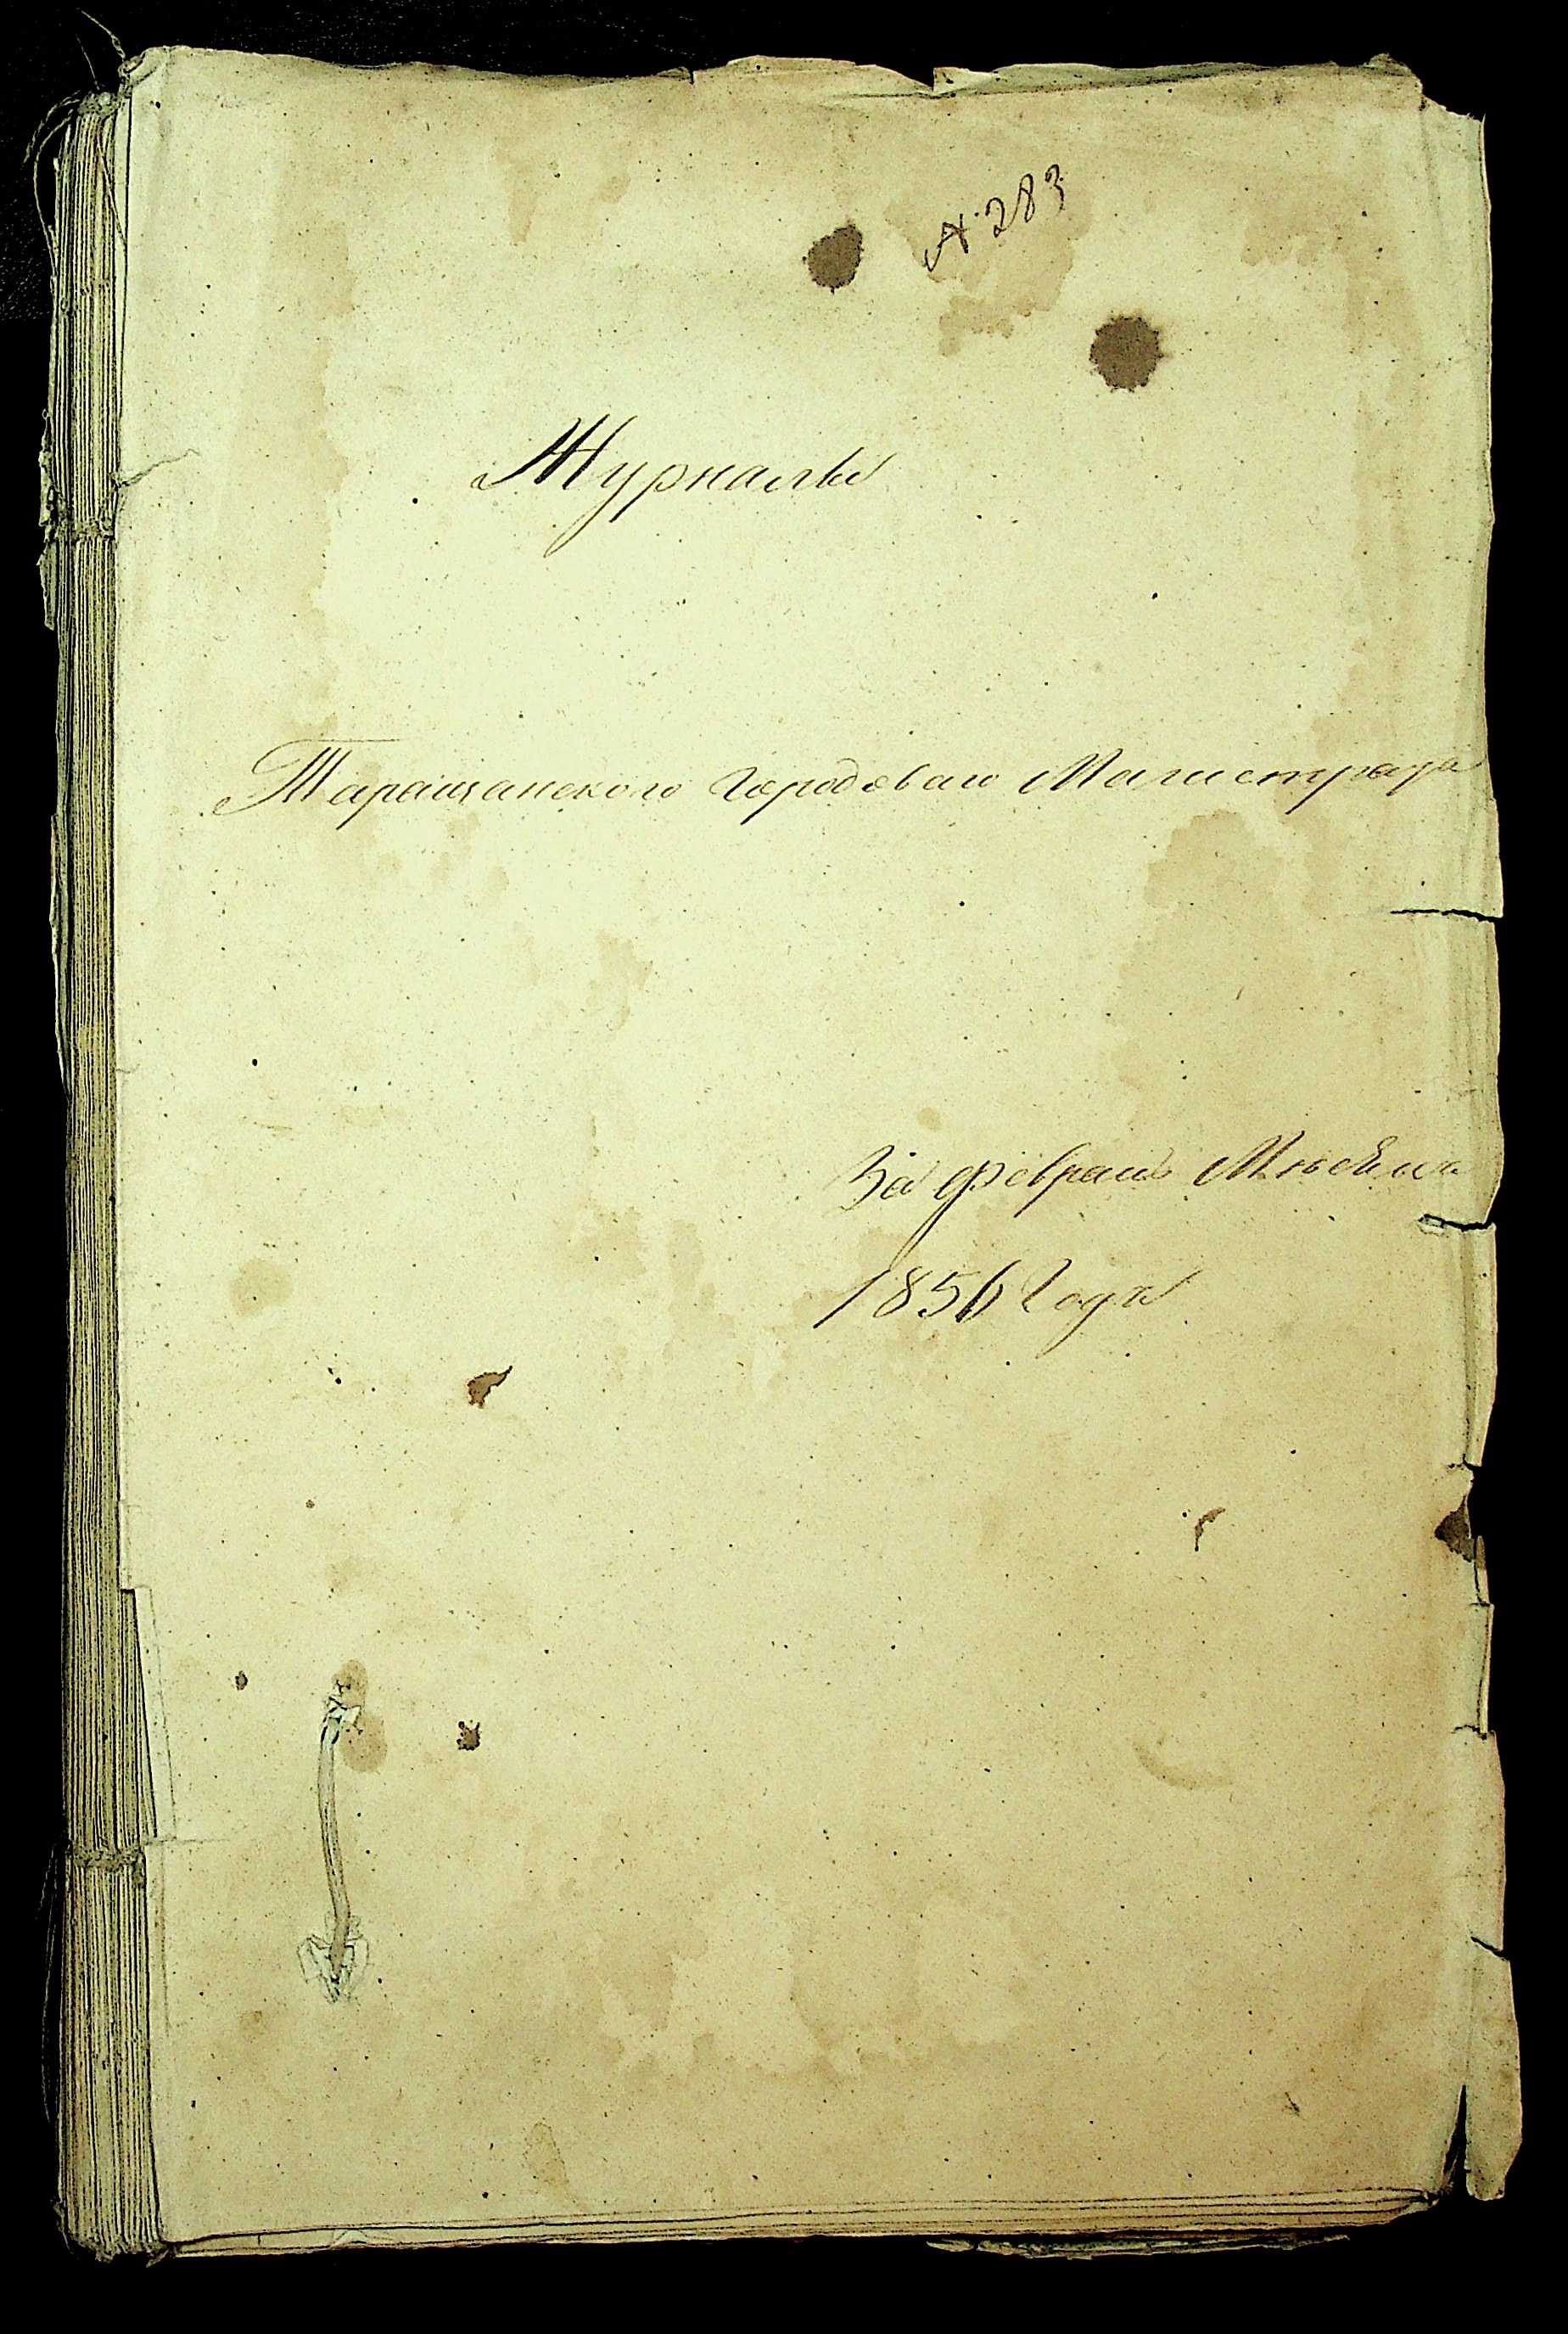 № 283
Журналы
Таращанского Городоваго Магистрата
За Февраль Мѣсяцъ
1856 Года